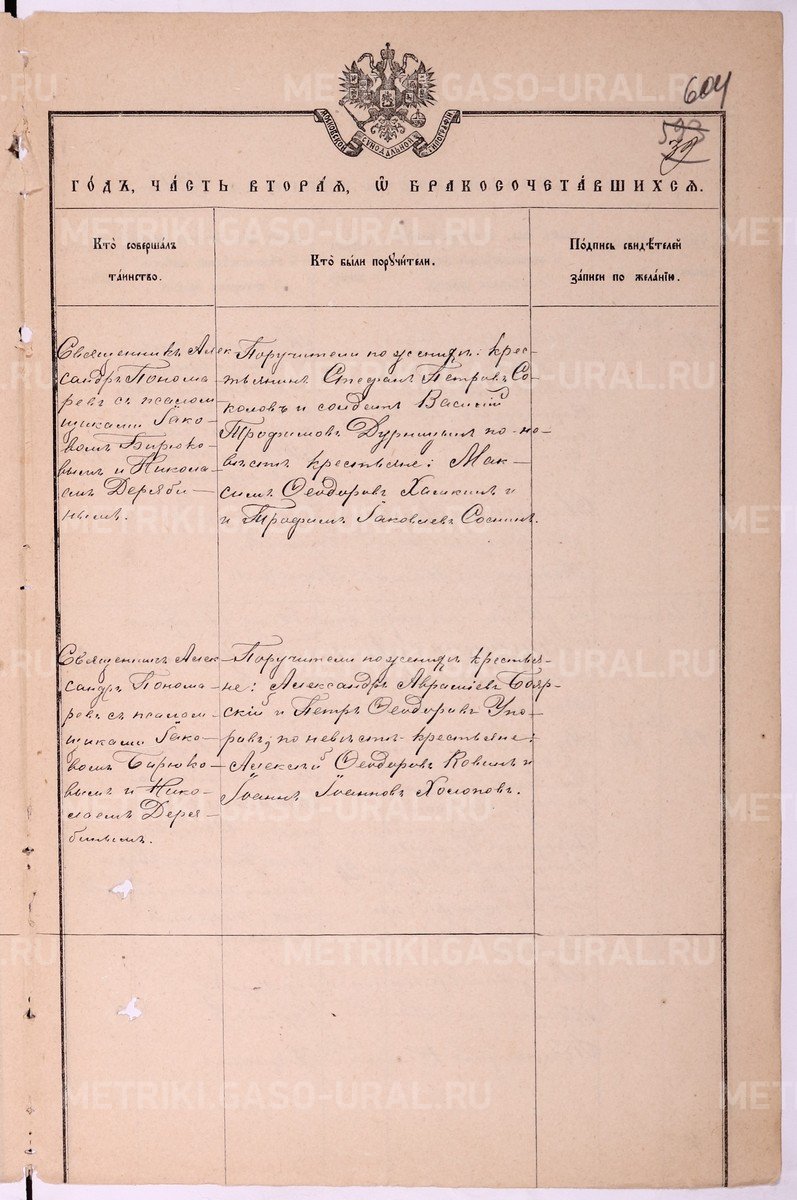 604
593
39
МОСКОВСКОЙ СѴНОДАЛЬНОЙ ТИПОГРАФІИ
ГО́ДЪ, ЧА́СТЬ ВТОРА́Я, Ѽ БРАКОСОЧЕТА́ВШИХСЯ.
Кто̀ соверша́лъ
та́инство.
Кто̀ бы́ли порꙋчи́тели.
По́дпись свидѣ́телей
за́писи по жела́нїю.
Священникъ Алек
сандръ Понома
ревъ съ псалом
щиками Іако-
вомъ Бирюко-
вымъ и Никола-
емъ Дерябин-
нымъ.
Поручители по женихѣ: крес-
тьянинъ Стефанъ Петровъ Со-
коловъ и солдатъ Василій
Трофимовъ Дурницынъ по не-
вѣстѣ крестьяне: Мак-
симъ Ѳеодоровъ Халкинъ и
и Трофимъ Іаковлевъ Соснинъ.
Священникъ Алек
сандръ Понома
ревъ съ псалом
щиками Іако-
вомъ Бирюко-
вымъ и Нико-
лаемъ Деря-
бинымъ.
Поручители по женихѣ крестья-
не: Александръ Авраміевъ Бояр-
скій и Петръ Ѳеодоровъ Упо-
ровъ; по невѣстѣ крестьяне:
Алексѣй Ѳеодоровъ Ковинъ и
Іоаннъ Іоанновъ Холоповъ.
METRIKI.GASO-URAL.RU